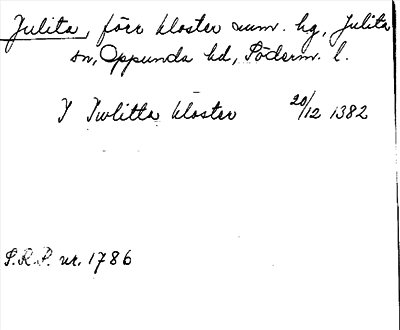 Julita, förr kloster num. hg, Julita
sn, Oppunda hd, Söderm. l.
J Iwlitta kloster 20/12 1382
S.R.P. nr. 1786